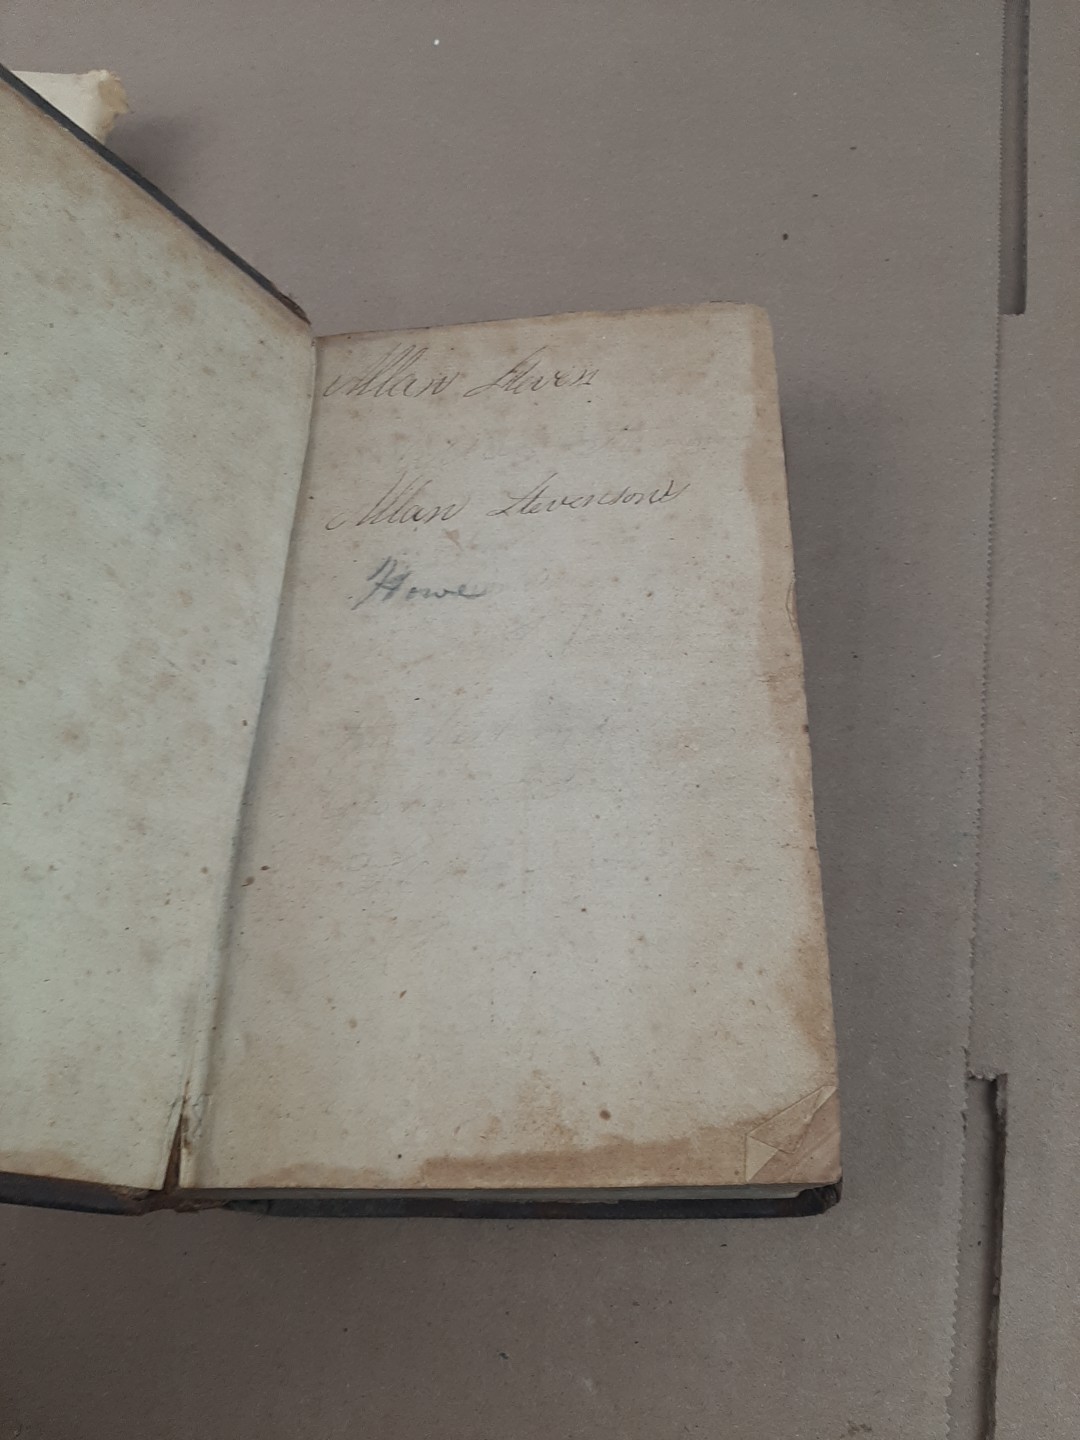 Allan Steven
Allan Stevensons
Howe